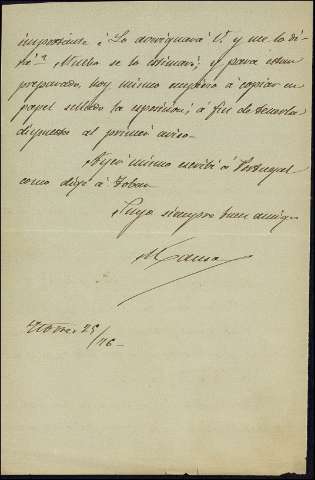 importante? Lo averiguará V. y me lo di-
rá? Mucho se lo estimaré; y para estar
preparado, hoy mismo empiezo á copiar en
papel sellado la esposicion, á fin de tenerla
dispuesta al primer aviso.
Ayer mismo escribí á Portugal
como dije á Tobar.
Suyo siempre buen amigo
25
/76-